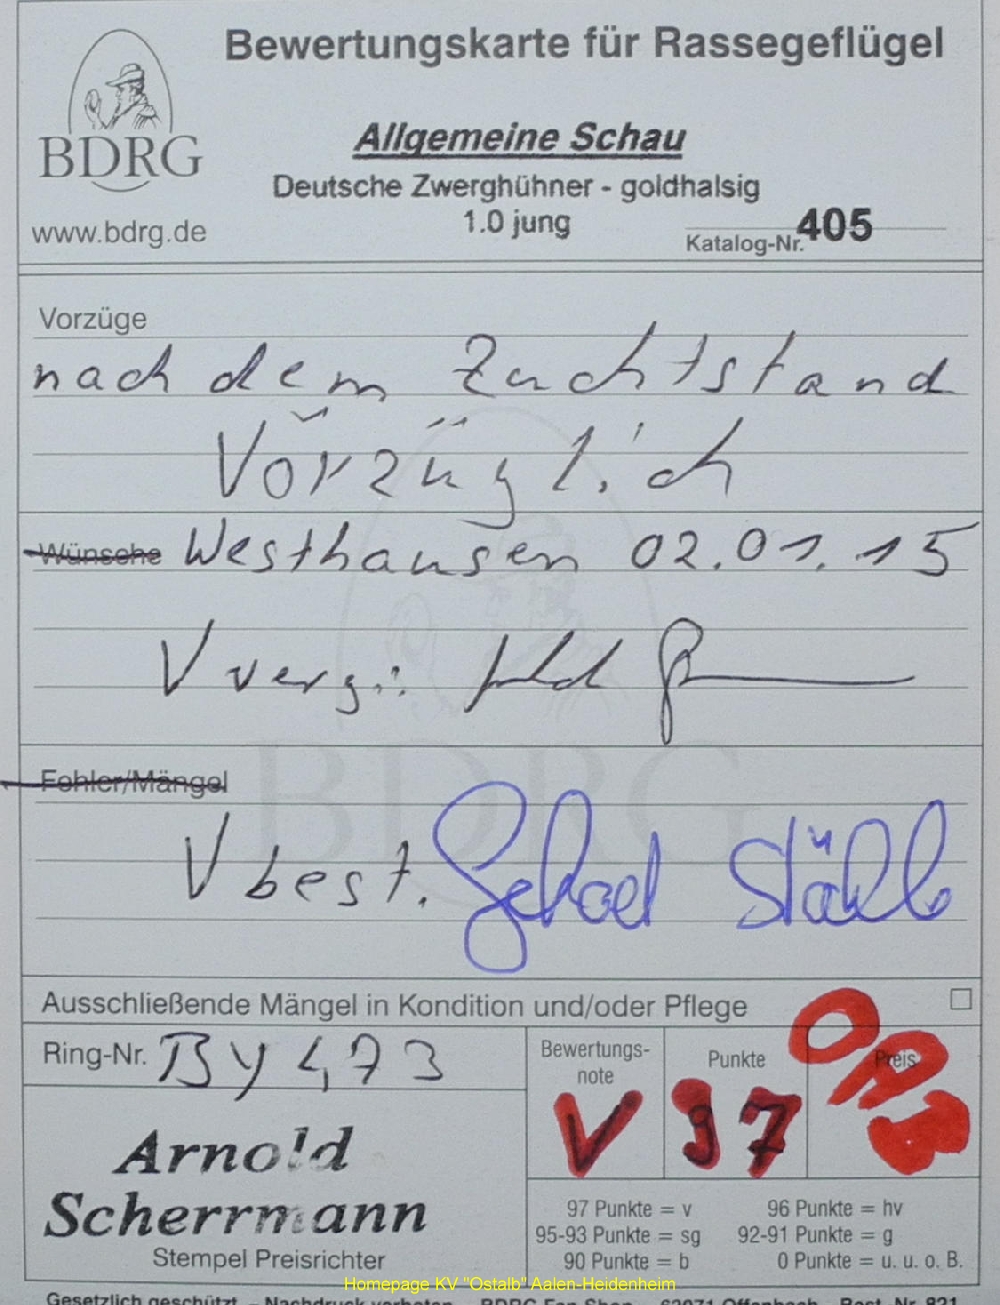 Bewertungskarte für Rassegeflügel
BDRG
www.bdrg.de
Allgemeine Schau
Deutsche Zwerghühner - goldhalsig
1.0 jung
Katalog-Nr. 405
Vorzüge
nach dem Zuchtstand
Vorzüglich
Wünsche Westhausen 02.01.15
V verg.:
Fehler/Mängel
V best.
Ausschließende Mängel in Kondition und/oder Pflege
Ring-Nr. BY 473
Bewertungs-
note
V
Punkte
97
Preis
Arnold
Scherrmann
Stempel Preisrichter
97 Punkte = v
96 Punkte = hv
95-93 Punkte = sg
92-91 Punkte = g
90 Punkte = b
0 Punkte = u. u. o. B.
Homepage KV "Ostalb" Aalen-Heidenheim
Gesetzlich geschützt - Nachdruck verboten BDRG Fan Shop 63071 Offenbach Best. Nr. 821